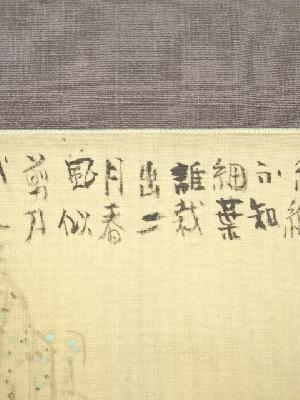 不知
細葉
誰裁
出二
月春
風似
剪刀